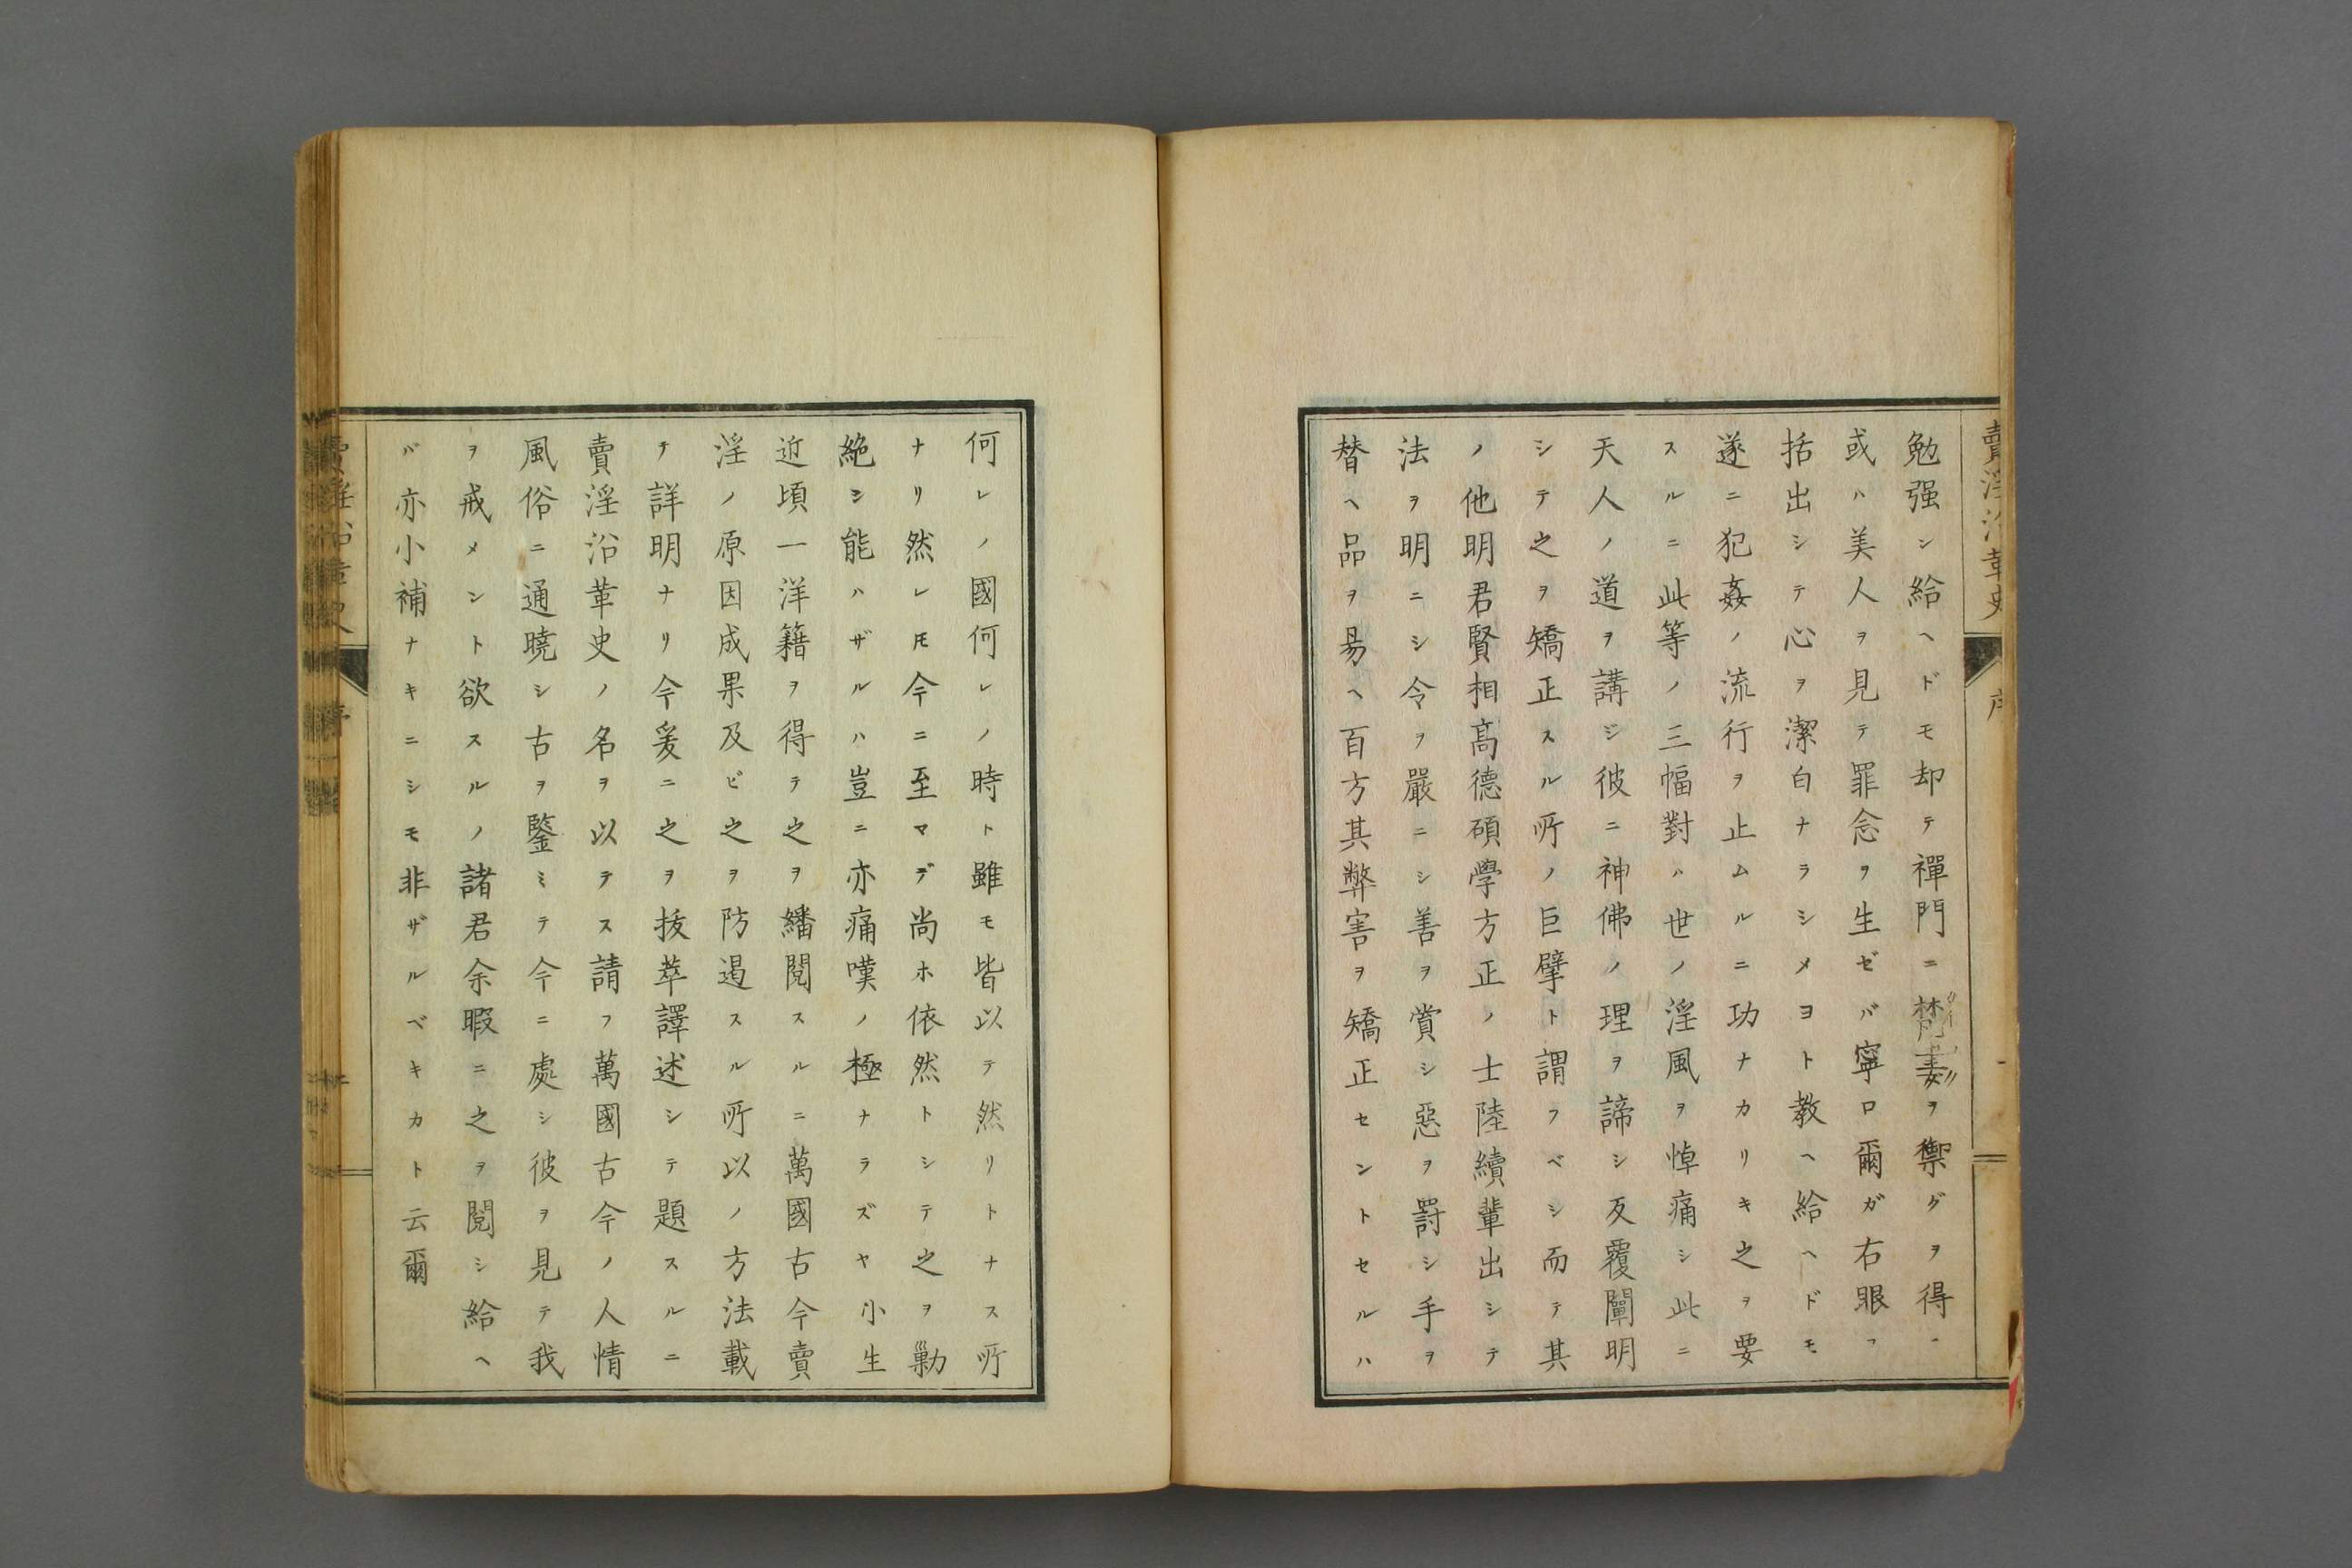 賣淫沿革史 序
勉强シ給ヘドモ却テ禪門ニ梵妻ヲ禦グヲ得ヽ
或ハ美人ヲ見テ罪念ヲ生ゼバ寧ロ爾ガ右眼ヲ
括出シテ心ヲ潔白ナラシメヨト教ヘ給ヘドモ
遂ニ犯姦ノ流行ヲ止ムルニ功ナカリキ之ヲ要
スルニ此等ノ三幅對ハ世ノ淫風ヲ悼痛シ此ニ
天人ノ道ヲ講ジ彼ニ神佛ノ理ヲ諦シ反覆闡明
シテ之ヲ矯正スル所ノ巨擘ト謂フベシ而テ其
ノ他明君賢相高德碩學方正ノ士陸續輩出シテ
法ヲ明ニシ令ヲ嚴ニシ善ヲ賞シ惡ヲ罸シ手ヲ
替ヘ品ヲ易ヘ百方其弊害ヲ矯正セントセルハ
何レノ國何レノ時ト雖モ皆以テ然リトナス所
ナリ然レ𪜈今ニ至マデ尚ホ依然トシテ之ヲ勦
絶シ能ハザルハ豈ニ亦痛嘆ノ極ナラズヤ小生
近頃一洋籍ヲ得テ之ヲ繙閲スルニ萬國古今賣
淫ノ原因成果及ビ之ヲ防遏スル所以ノ方法載
テ詳明ナリ今爰ニ之ヲ抜萃譯述シテ題スルニ
賣淫沿革史ノ名ヲ以テス請フ萬國古今ノ人情
風俗ニ通曉シ古ヲ鑒ミテ今ニ處シ彼ヲ見テ我
ヲ戒メント欲スルノ諸君余暇ニ之ヲ閲シ給ヘ
バ亦小補ナキニシモ非ザルベキカト云爾